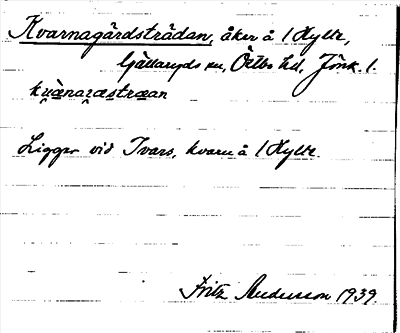 Kvarnagärdsträdan, åker å 1 Hylte,
Gällaryds sn, Östbo hd, Jönk. l.
Ligger vid Ivars, kvarn å 1 Hylte.
Fritz Andersson 1939.